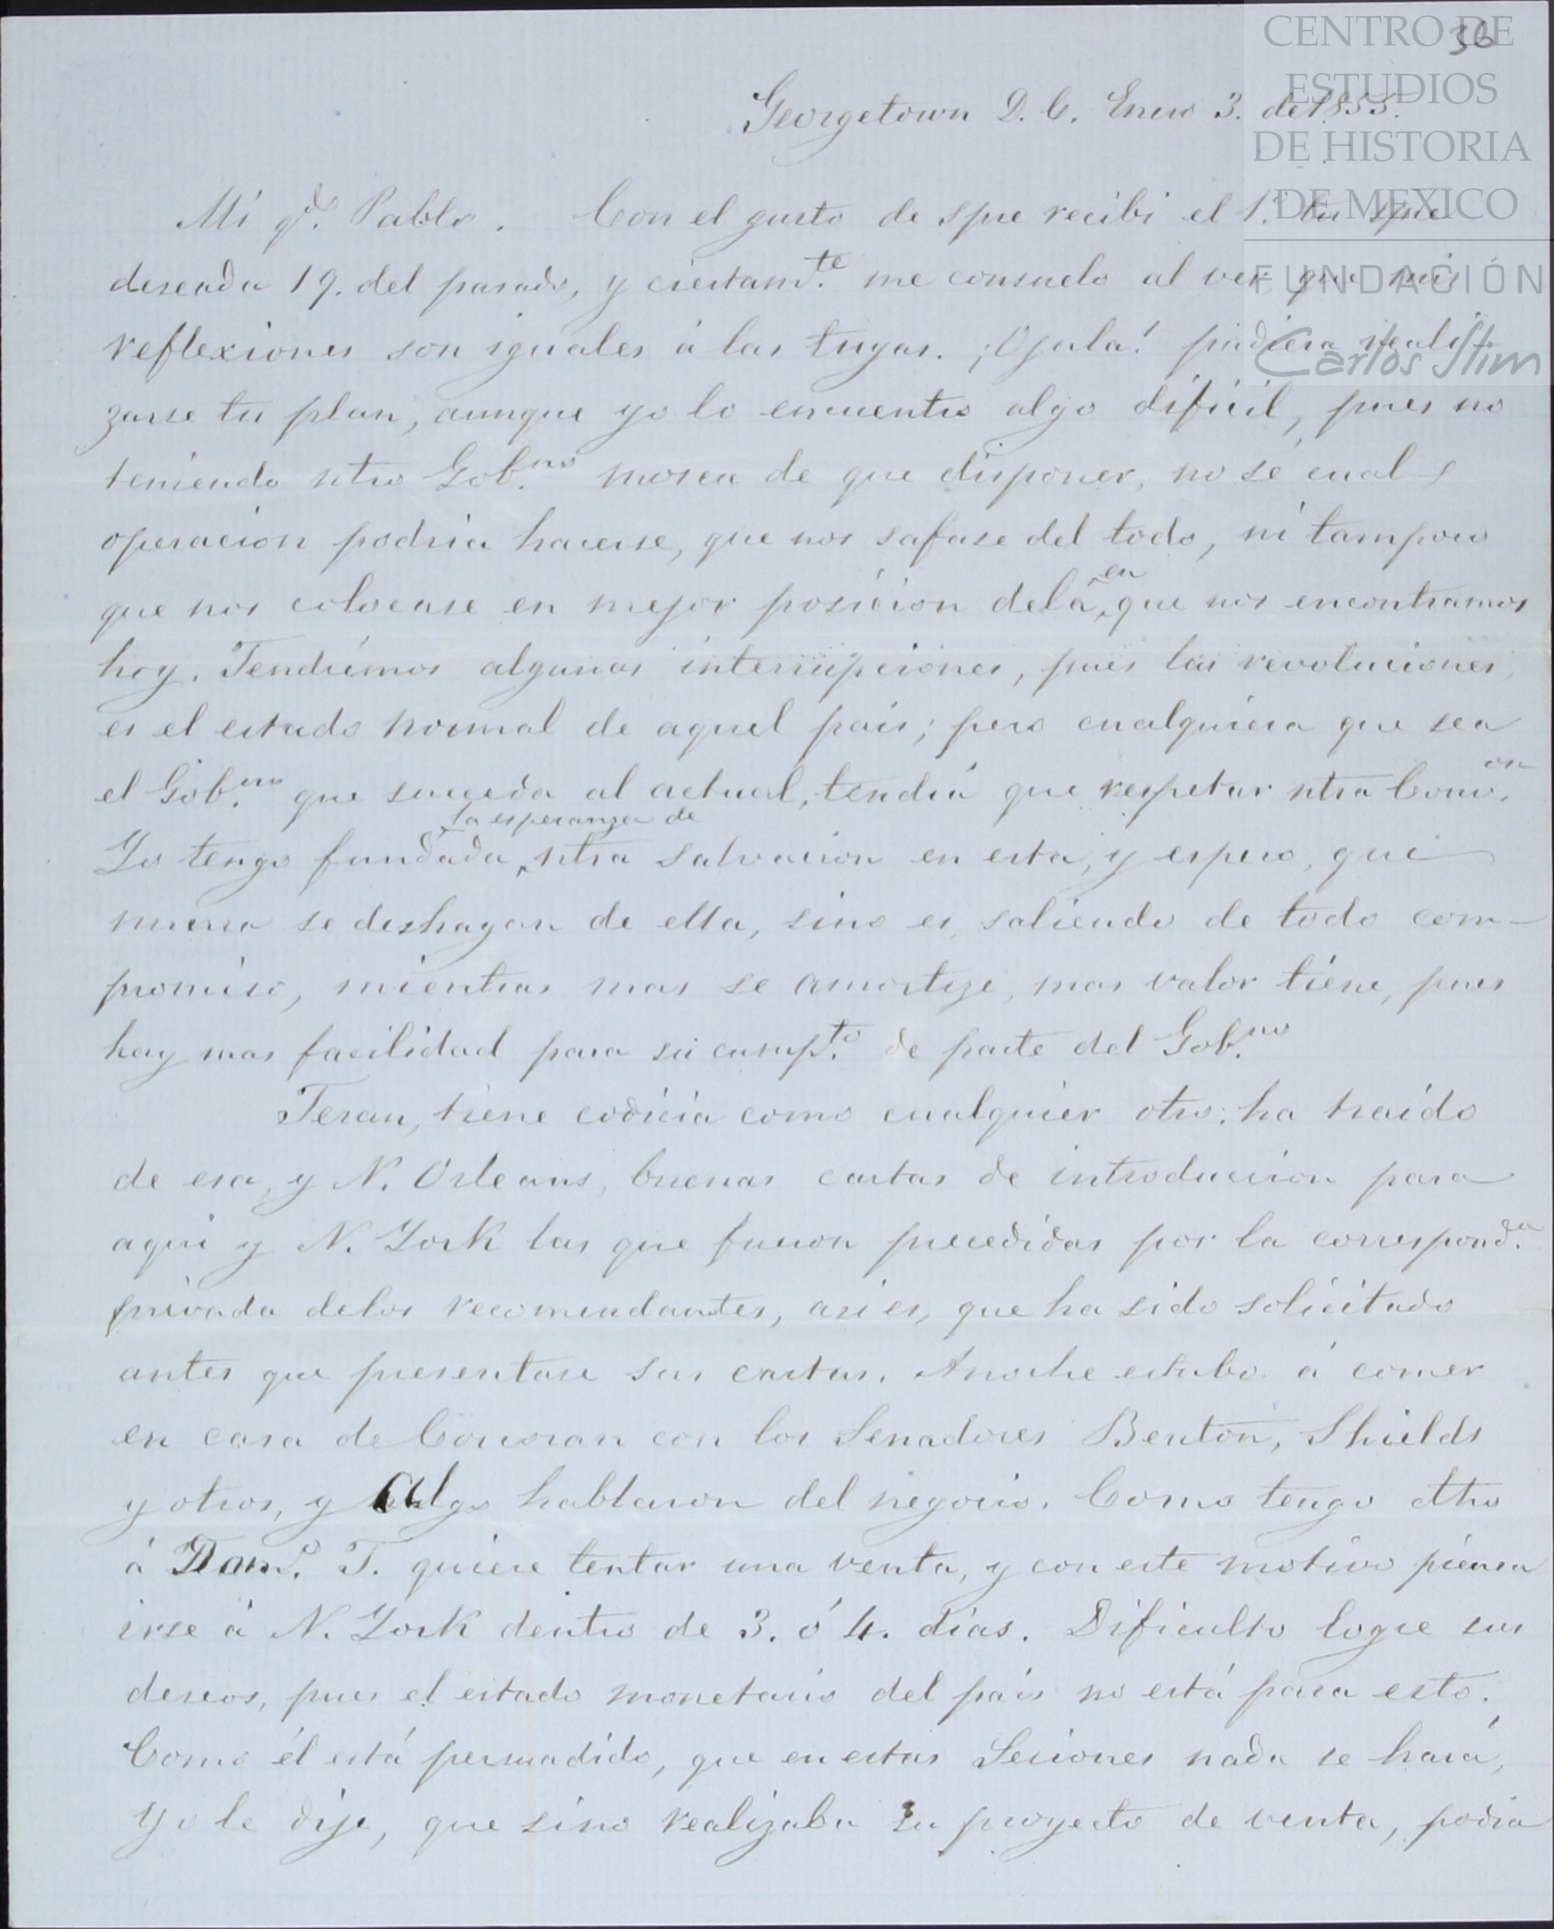 36
CENTRO DE
ESTUDIOS
DE HISTORIA
DE MEXICO
FUNDACIÓN
Carlos Slim
Georgetown D. C. Enero 3. de 1855.
Mi qdo. Pablo. Con el gusto de spre recibi el 1.º tu spre
deseada 19. del pasado, y ciertamte. me consuelo al ver que mis
reflexiones son iguales á las tuyas. ¡Ojala! pudiera reali-
zarse tu plan, aunque yo lo encuentro algo dificil, pues no
teniendo ntro Gobno. mosca de que disponer, no sé cual
operacion podria hacerse, que nos safase del todo, ni tampoco
que nos colocase en mejor posicion dela en que nos encontramos
hoy. Tendrémos algunas interrupciones, pues las revoluciones,
es el estado normal de aquel pais; pero cualquiera que sea
el Gobno. que suceda al actual, tendrá que respetar ntra Convon.
Yo tengo fundada la esperanza de ntra salvacion en esta, y espero, que
nunca se deshagan de ella, sino es saliendo de todo com-
promiso, mientras mas se amortize, mas valor tiene, pues
hay mas facilidad para su cumpto. de parte del Gobno.
Teran, tiene codicia como cualquier otro: ha traido
de esa, y N. Orleans, buenas cartas de introduccion para
aqui y N. York las que fueron precedidas por la correspondа.
privada delos recomendantes, asi es, que ha sido solicitado
antes que presentase sus cartas. Anoche estubo á comer
en casa de Corcoran con los Senadores Benton, Shields
y otros, y algo hablaron del negocio. Como tengo dho
á Domo. T. quiere tentar una venta, y con este motivo piensa
irse á N. York dentro de 3. ó 4. dias. Dificulto logre sus
deseos, pues el estado monetario del pais no está para esto.
Como él está persuadido, que en estas Sesiones nada se hará,
yo le dije, que sino realizaba su proyecto de venta, podia